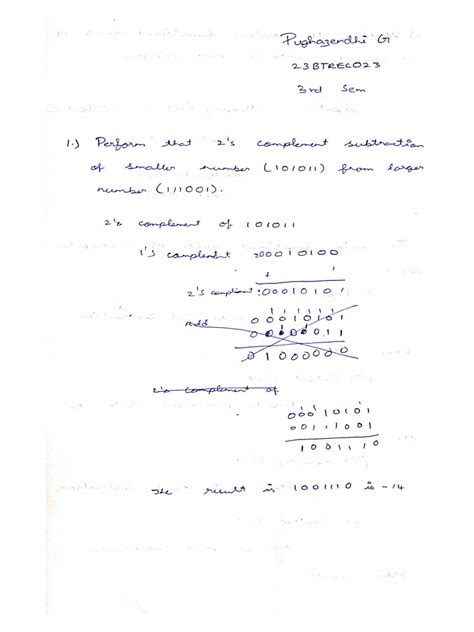 Pughazendhi G
23BTREC023
3rd Sem
1.) Perform that 2's complement subtraction
of smaller number (101011) from larger
number (111001).
2's complement of 101011
1's complement 00010100
+ 1
2's compliment : 00010101
1 1 1
Add 00010101
00000011
01000000
2's complement of
1 1
00010101
00111001
1001110
The result is 1001110 is -14